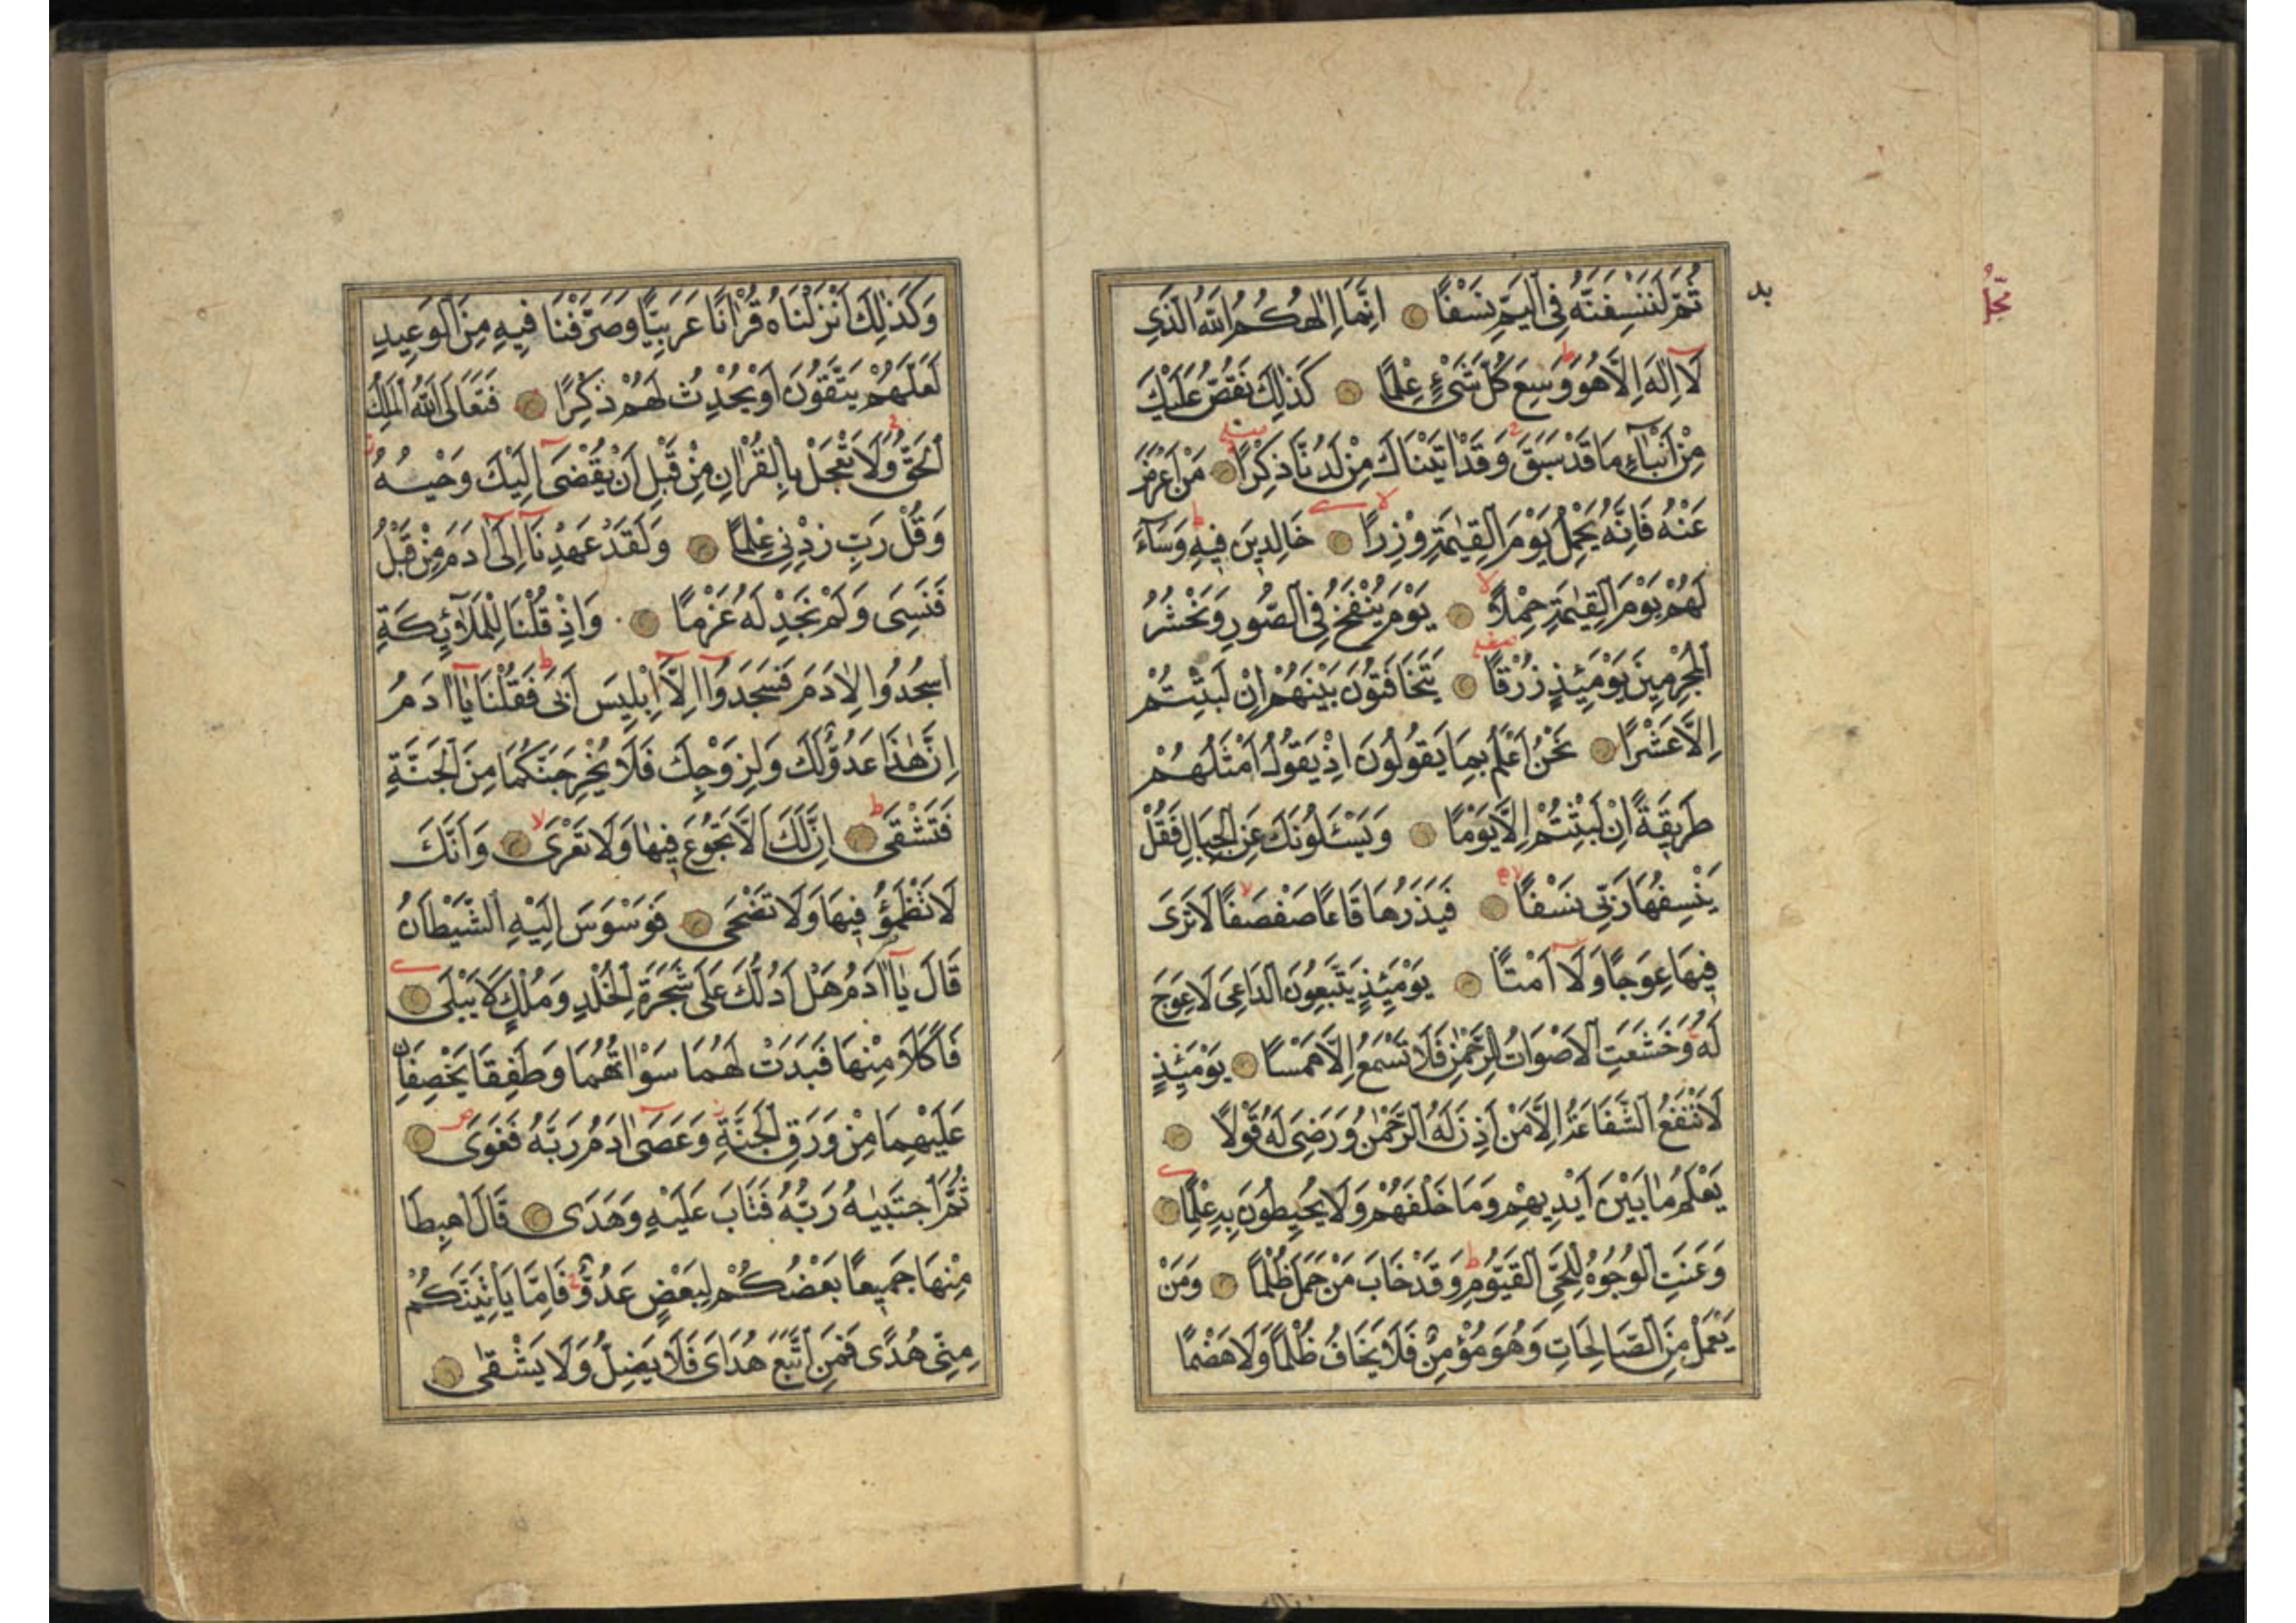 ثُمَّ لَنَنْسِفَنَّهُ فِى الْيَمِّ نَسْفًا اِنَّمَا اِلٰهُكُمُ اللّٰهُ الَّذِى
لَا اِلٰهَ اِلَّا هُوَ وَسِعَ كُلَّ شَىْءٍ عِلْمًا كَذٰلِكَ نَقُصُّ عَلَيْكَ
مِنْ اَنْبَاۤءِ مَا قَدْ سَبَقَ وَقَدْ اٰتَيْنَاكَ مِنْ لَدُنَّا ذِكْرًا مَنْ اَعْرَضَ
عَنْهُ فَاِنَّهُ يَحْمِلُ يَوْمَ الْقِيٰمَةِ وِزْرًا خَالِدِينَ فِيهِ وَسَاۤءَ
لَهُمْ يَوْمَ الْقِيٰمَةِ حِمْلًا يَوْمَ يُنْفَخُ فِى الصُّورِ وَنَحْشُرُ
الْمُجْرِمِينَ يَوْمَئِذٍ زُرْقًا يَتَخَافَتُونَ بَيْنَهُمْ اِنْ لَبِثْتُمْ
اِلَّا عَشْرًا نَحْنُ اَعْلَمُ بِمَا يَقُولُونَ اِذْ يَقُولُ اَمْثَلُهُمْ
طَرِيقَةً اِنْ لَبِثْتُمْ اِلَّا يَوْمًا وَيَسْئَلُونَكَ عَنِ الْجِبَالِ فَقُلْ
يَنْسِفُهَا رَبِّى نَسْفًا فَيَذَرُهَا قَاعًا صَفْصَفًا لَا تَرَى
فِيهَا عِوَجًا وَلَا اَمْتًا يَوْمَئِذٍ يَتَّبِعُونَ الدَّاعِىَ لَا عِوَجَ
لَهُ وَخَشَعَتِ الْاَصْوَاتُ لِلرَّحْمٰنِ فَلَا تَسْمَعُ اِلَّا هَمْسًا يَوْمَئِذٍ
لَا تَنْفَعُ الشَّفَاعَةُ اِلَّا مَنْ اَذِنَ لَهُ الرَّحْمٰنُ وَرَضِىَ لَهُ قَوْلًا
يَعْلَمُ مَا بَيْنَ اَيْدِيهِمْ وَمَا خَلْفَهُمْ وَلَا يُحِيطُونَ بِهِ عِلْمًا
وَعَنَتِ الْوُجُوهُ لِلْحَىِّ الْقَيُّومِ وَقَدْ خَابَ مَنْ حَمَلَ ظُلْمًا وَمَنْ
يَعْمَلْ مِنَ الصَّالِحَاتِ وَهُوَ مُؤْمِنٌ فَلَا يَخَافُ ظُلْمًا وَلَا هَضْمًا
وَكَذٰلِكَ اَنْزَلْنَاهُ قُرْاٰنًا عَرَبِيًّا وَصَرَّفْنَا فِيهِ مِنَ الْوَعِيدِ
لَعَلَّهُمْ يَتَّقُونَ اَوْ يُحْدِثُ لَهُمْ ذِكْرًا فَتَعَالَى اللّٰهُ الْمَلِكُ
الْحَقُّ وَلَا تَعْجَلْ بِالْقُرْاٰنِ مِنْ قَبْلِ اَنْ يُقْضٰى اِلَيْكَ وَحْيُهُ
وَقُلْ رَبِّ زِدْنِى عِلْمًا وَلَقَدْ عَهِدْنَا اِلٰى اٰدَمَ مِنْ قَبْلُ
فَنَسِىَ وَلَمْ نَجِدْ لَهُ عَزْمًا وَاِذْ قُلْنَا لِلْمَلٰۤئِكَةِ
اسْجُدُوا لِاٰدَمَ فَسَجَدُوا اِلَّا اِبْلِيسَ اَبٰى فَقُلْنَا يَا اٰدَمُ
اِنَّ هٰذَا عَدُوٌّ لَكَ وَلِزَوْجِكَ فَلَا يُخْرِجَنَّكُمَا مِنَ الْجَنَّةِ
فَتَشْقٰى اِنَّ لَكَ اَلَّا تَجُوعَ فِيهَا وَلَا تَعْرٰى وَاَنَّكَ
لَا تَظْمَؤُ فِيهَا وَلَا تَضْحٰى فَوَسْوَسَ اِلَيْهِ الشَّيْطَانُ
قَالَ يَا اٰدَمُ هَلْ اَدُلُّكَ عَلٰى شَجَرَةِ الْخُلْدِ وَمُلْكٍ لَا يَبْلٰى
فَاَكَلَا مِنْهَا فَبَدَتْ لَهُمَا سَوْاٰتُهُمَا وَطَفِقَا يَخْصِفَانِ
عَلَيْهِمَا مِنْ وَرَقِ الْجَنَّةِ وَعَصٰى اٰدَمُ رَبَّهُ فَغَوٰى
ثُمَّ اجْتَبٰيهُ رَبُّهُ فَتَابَ عَلَيْهِ وَهَدٰى قَالَ اهْبِطَا
مِنْهَا جَمِيعًا بَعْضُكُمْ لِبَعْضٍ عَدُوٌّ فَاِمَّا يَاْتِيَنَّكُمْ
مِنِّى هُدًى فَمَنِ اتَّبَعَ هُدَاىَ فَلَا يَضِلُّ وَلَا يَشْقٰى